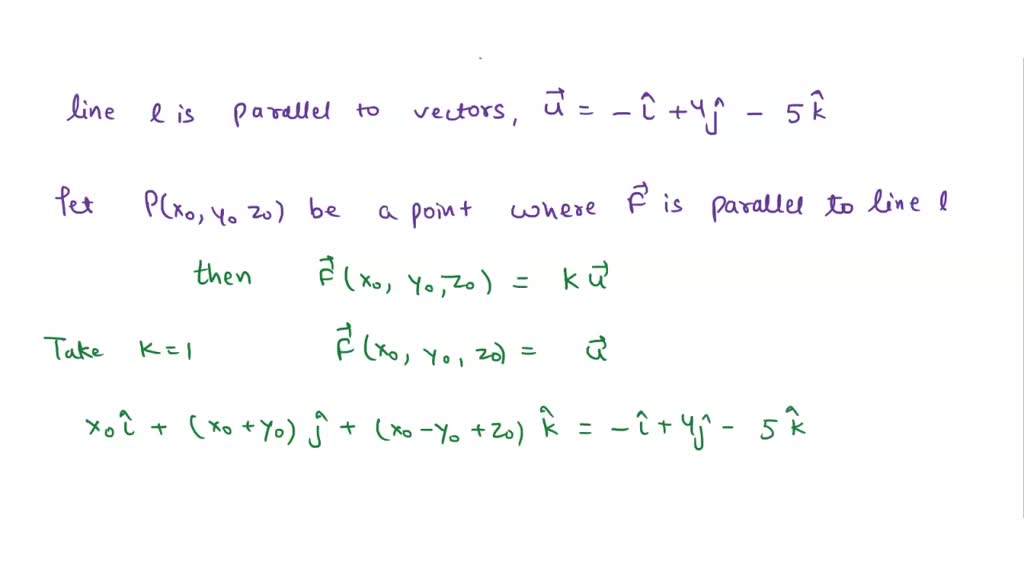 line l is parallel to vectors, u⃗ = -î + 4ĵ - 5k̂
let P(x₀, y₀ z₀) be a point where F⃗ is parallel to line l
then F⃗(x₀, y₀, z₀) = k u⃗
Take k=1 F⃗(x₀, y₀, z₀) = u⃗
x₀î + (x₀+y₀)ĵ + (x₀-y₀+z₀)k̂ = -î + 4ĵ - 5k̂